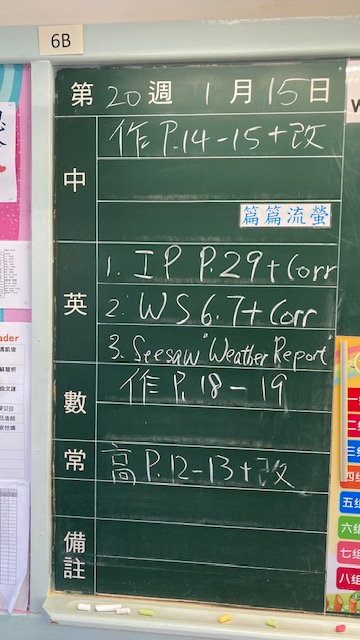 6B
第 20 週 1 月 15 日
中
作 P.14-15+改
篇篇流螢
英
1. IP P.29+Corr
2. WS 6.7+Corr
3. Seesaw "Weather Report"
數
作 P.18-19
常
高 P.12-13+改
備註
ader
五組
六組
七組
八組